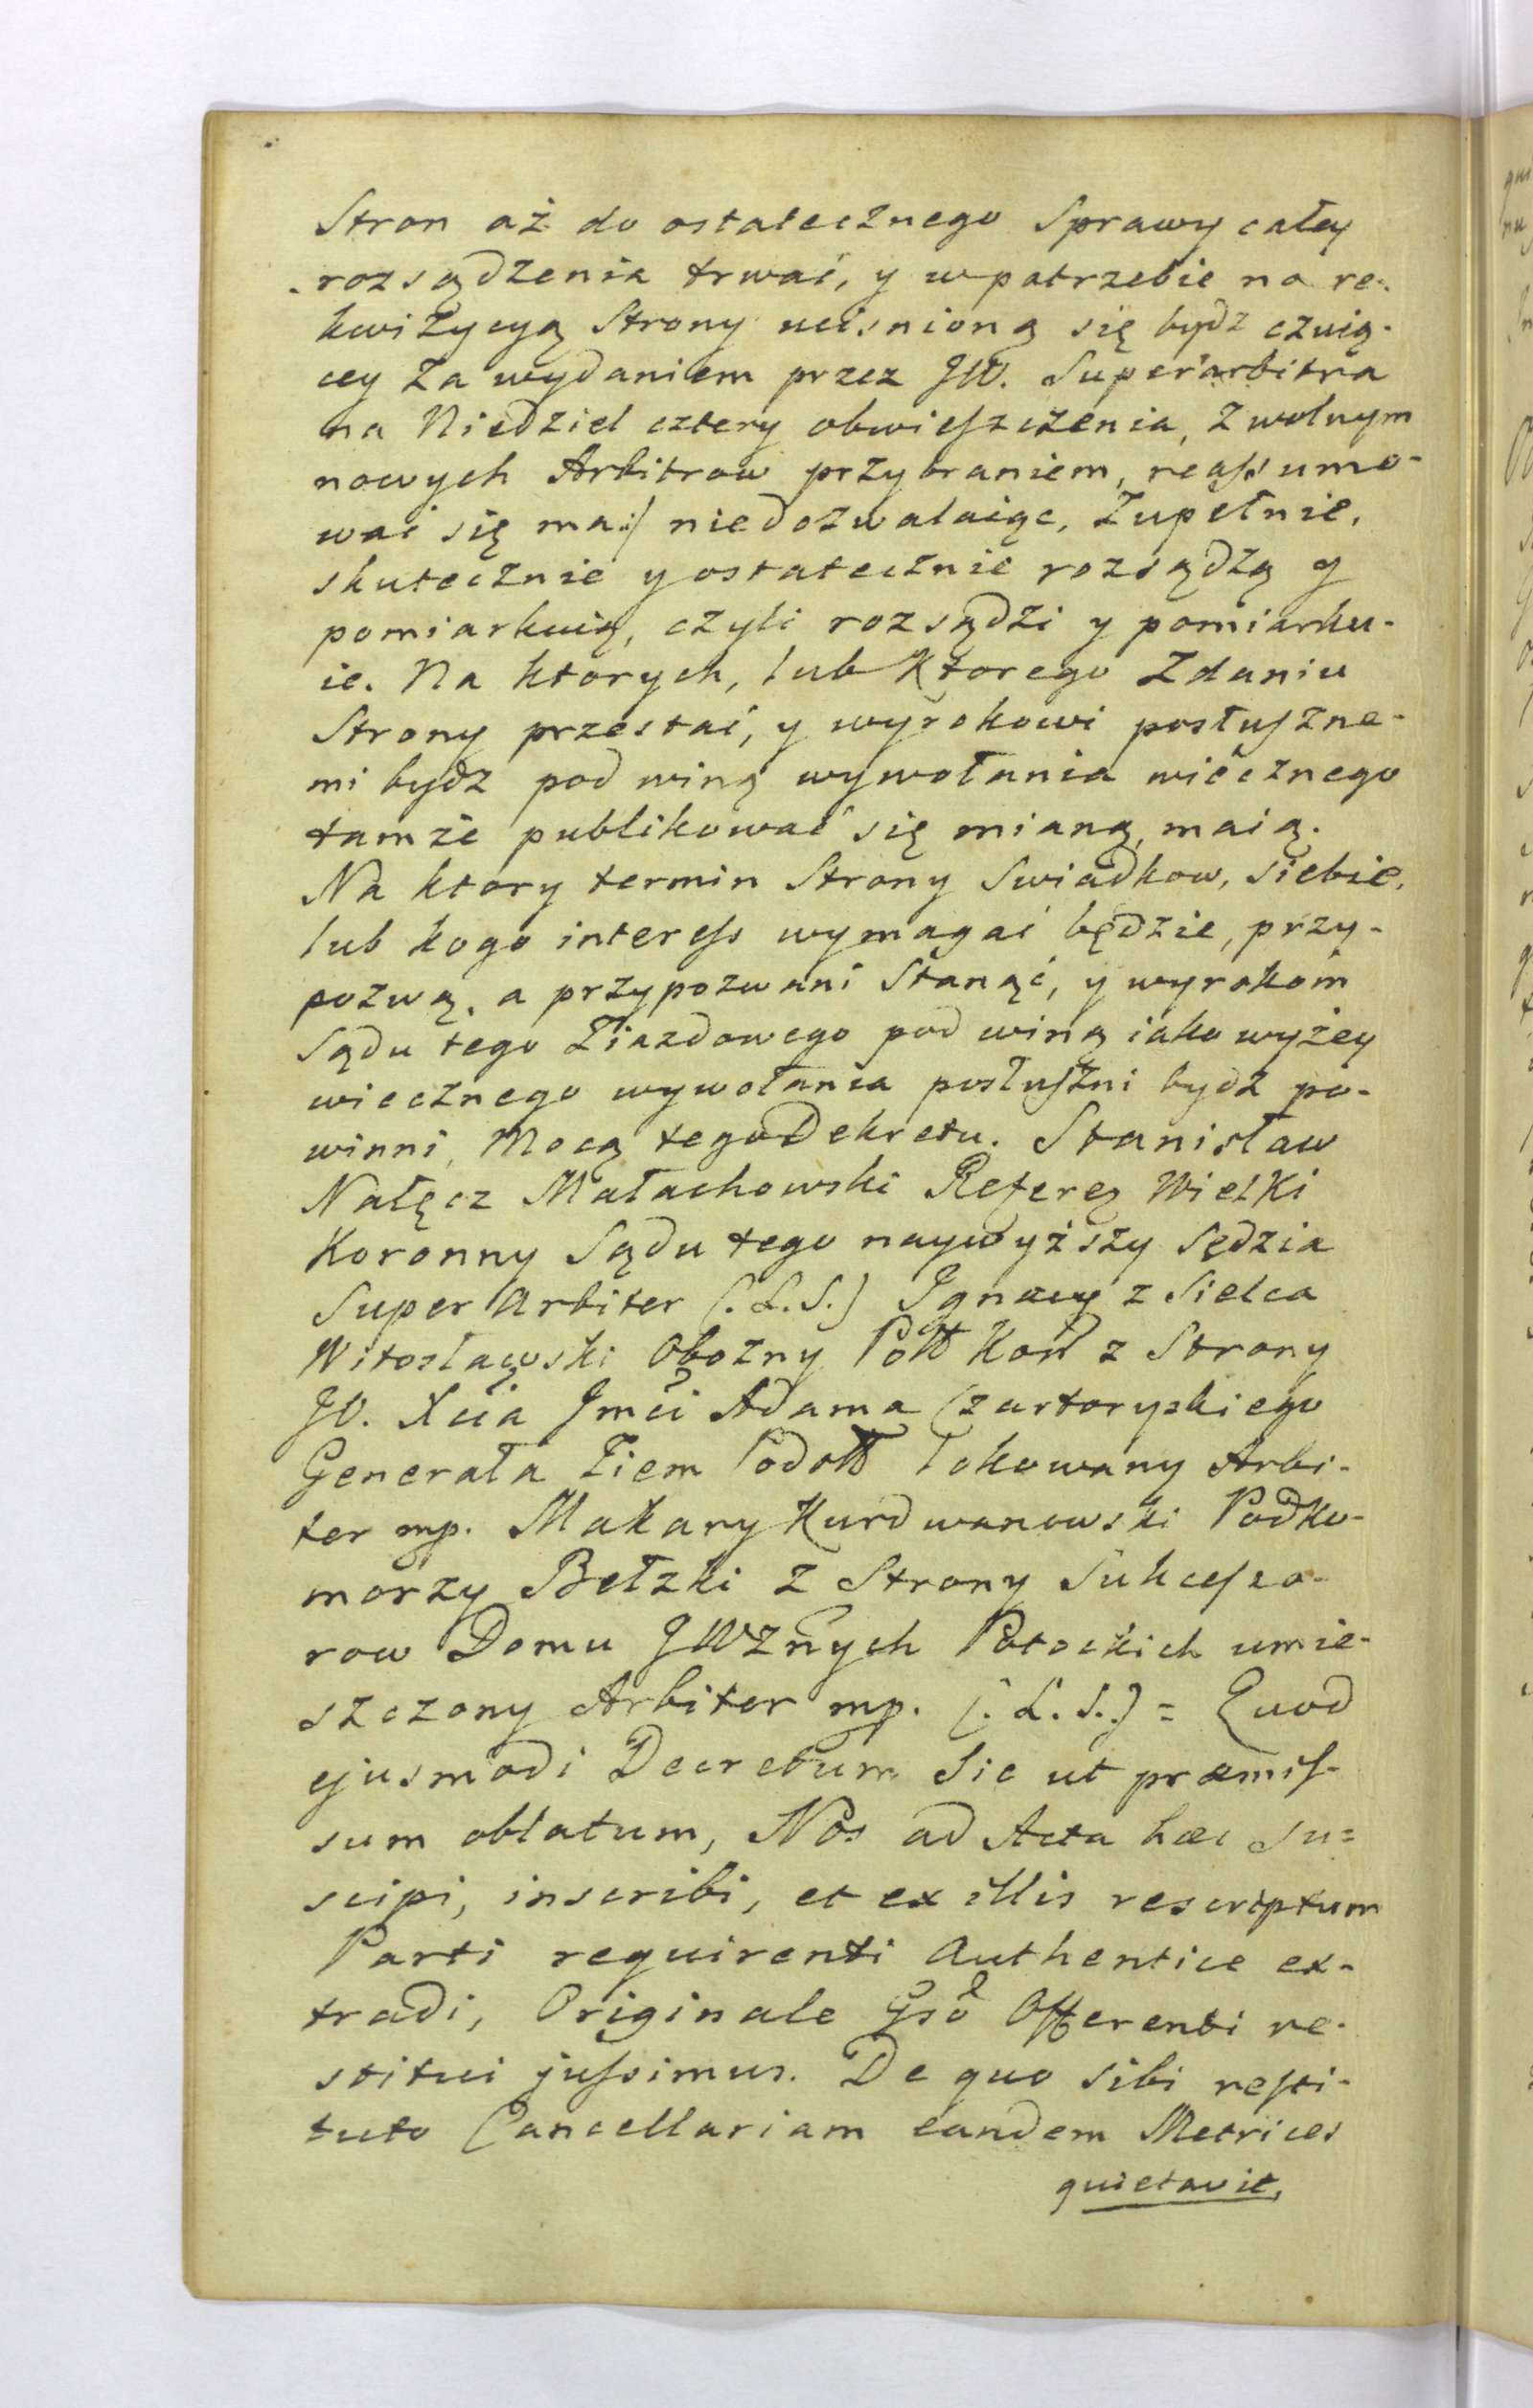 Stron aż do ostatecznego Sprawy całey
rozsądzenia trwać, y w potrzebie na re-
kwizycyą Strony uciśnioną się bydź czuią-
cey za wydaniem przez JW. Superarbitra
na Niedziel cztery obwieszczenia, z wolnym
nowych Arbitrow przybraniem, reassumo-
wać się ma:/ niedozwalaiąc, zupełnie,
skutecznie y ostatecznie rozsądzą y
pomiarkuią, czyli rozsądzi y pomiarku-
ie. Na ktorych, lub Ktorego Zdaniu
Strony przestać, y wyrokowi posłuszne-
mi bydz pod winą wywołania wiecznego
tamże publikować się mianą, maią.
Na ktory termin Strony Swiadkow, siebie,
lub kogo interess wymagać będzie, przy-
pozwą, a przypozwani Stanąć, y wyrokom
Sądu tego Ziazdowego pod winą iako wyżey
wiecznego wywołania posłuszni bydz po-
winni, Mocą tego Dekretu. Stanisław
Nałęcz Małachowski Referez Wielki
Koronny Sądu tego naywyższy Sędzia
Super Arbiter (:L.S.) Jgnacy z Sielca
Witosławski Obozny Poll Kor z Strony
JO. Xcia Jmci Adama Czartoryskiego
Generała Ziem Podoll lokowany Arbi-
ter mp. Makary Kurdwanowski Podko-
morzy Bełzki z Strony Sukcesso-
row Domu JWznych Potockich umie-
szczony Arbiter mp. (:L.S.) = Quod
ejusmodi Decretum Sic ut præmis-
sum oblatum, Nos ad Acta hæc su=
scipi, inscribi, et ex illis rescriptum
Parti requirenti Authentice ex-
tradi, Originale Gso Offerenti re-
stitui jussimus. De quo sibi resti-
tuto Cancellariam eandem Metrices
quietavit,